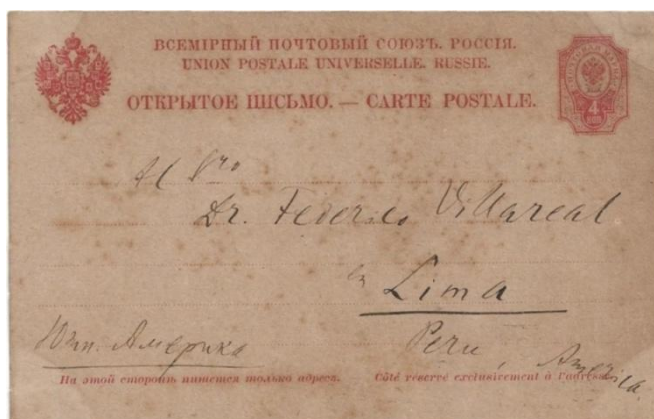 ВСЕМІРНЫЙ ПОЧТОВЫЙ СОЮЗЪ. РОССІЯ.
UNION POSTALE UNIVERSELLE. RUSSIE.
ОТКРЫТОЕ ПИСЬМО. — CARTE POSTALE.
4
Al Sro
Dr. Federico Villareal
en
Lima
Peru, America.
Южн. Америка
На этой сторонѣ пишется только адресъ.
Côté réservé exclusivement à l'adresse.